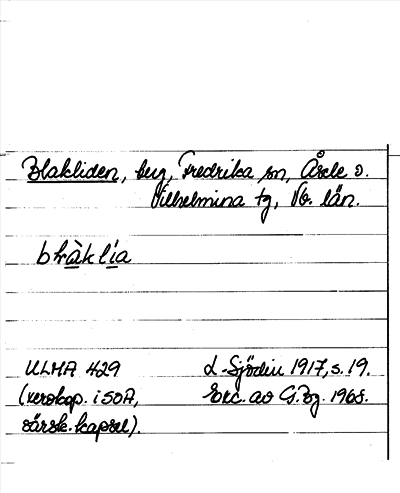 Blakliden, berg, Fredrika sn, Åsele o.
Vilhelmina tg, Vb. län.
bràklía
ULMA 429
(xerokop. i SOA,
särsk. kapsel).
L. Sjödin 1917, s. 19.
Exc. av G. Bg. 1968.